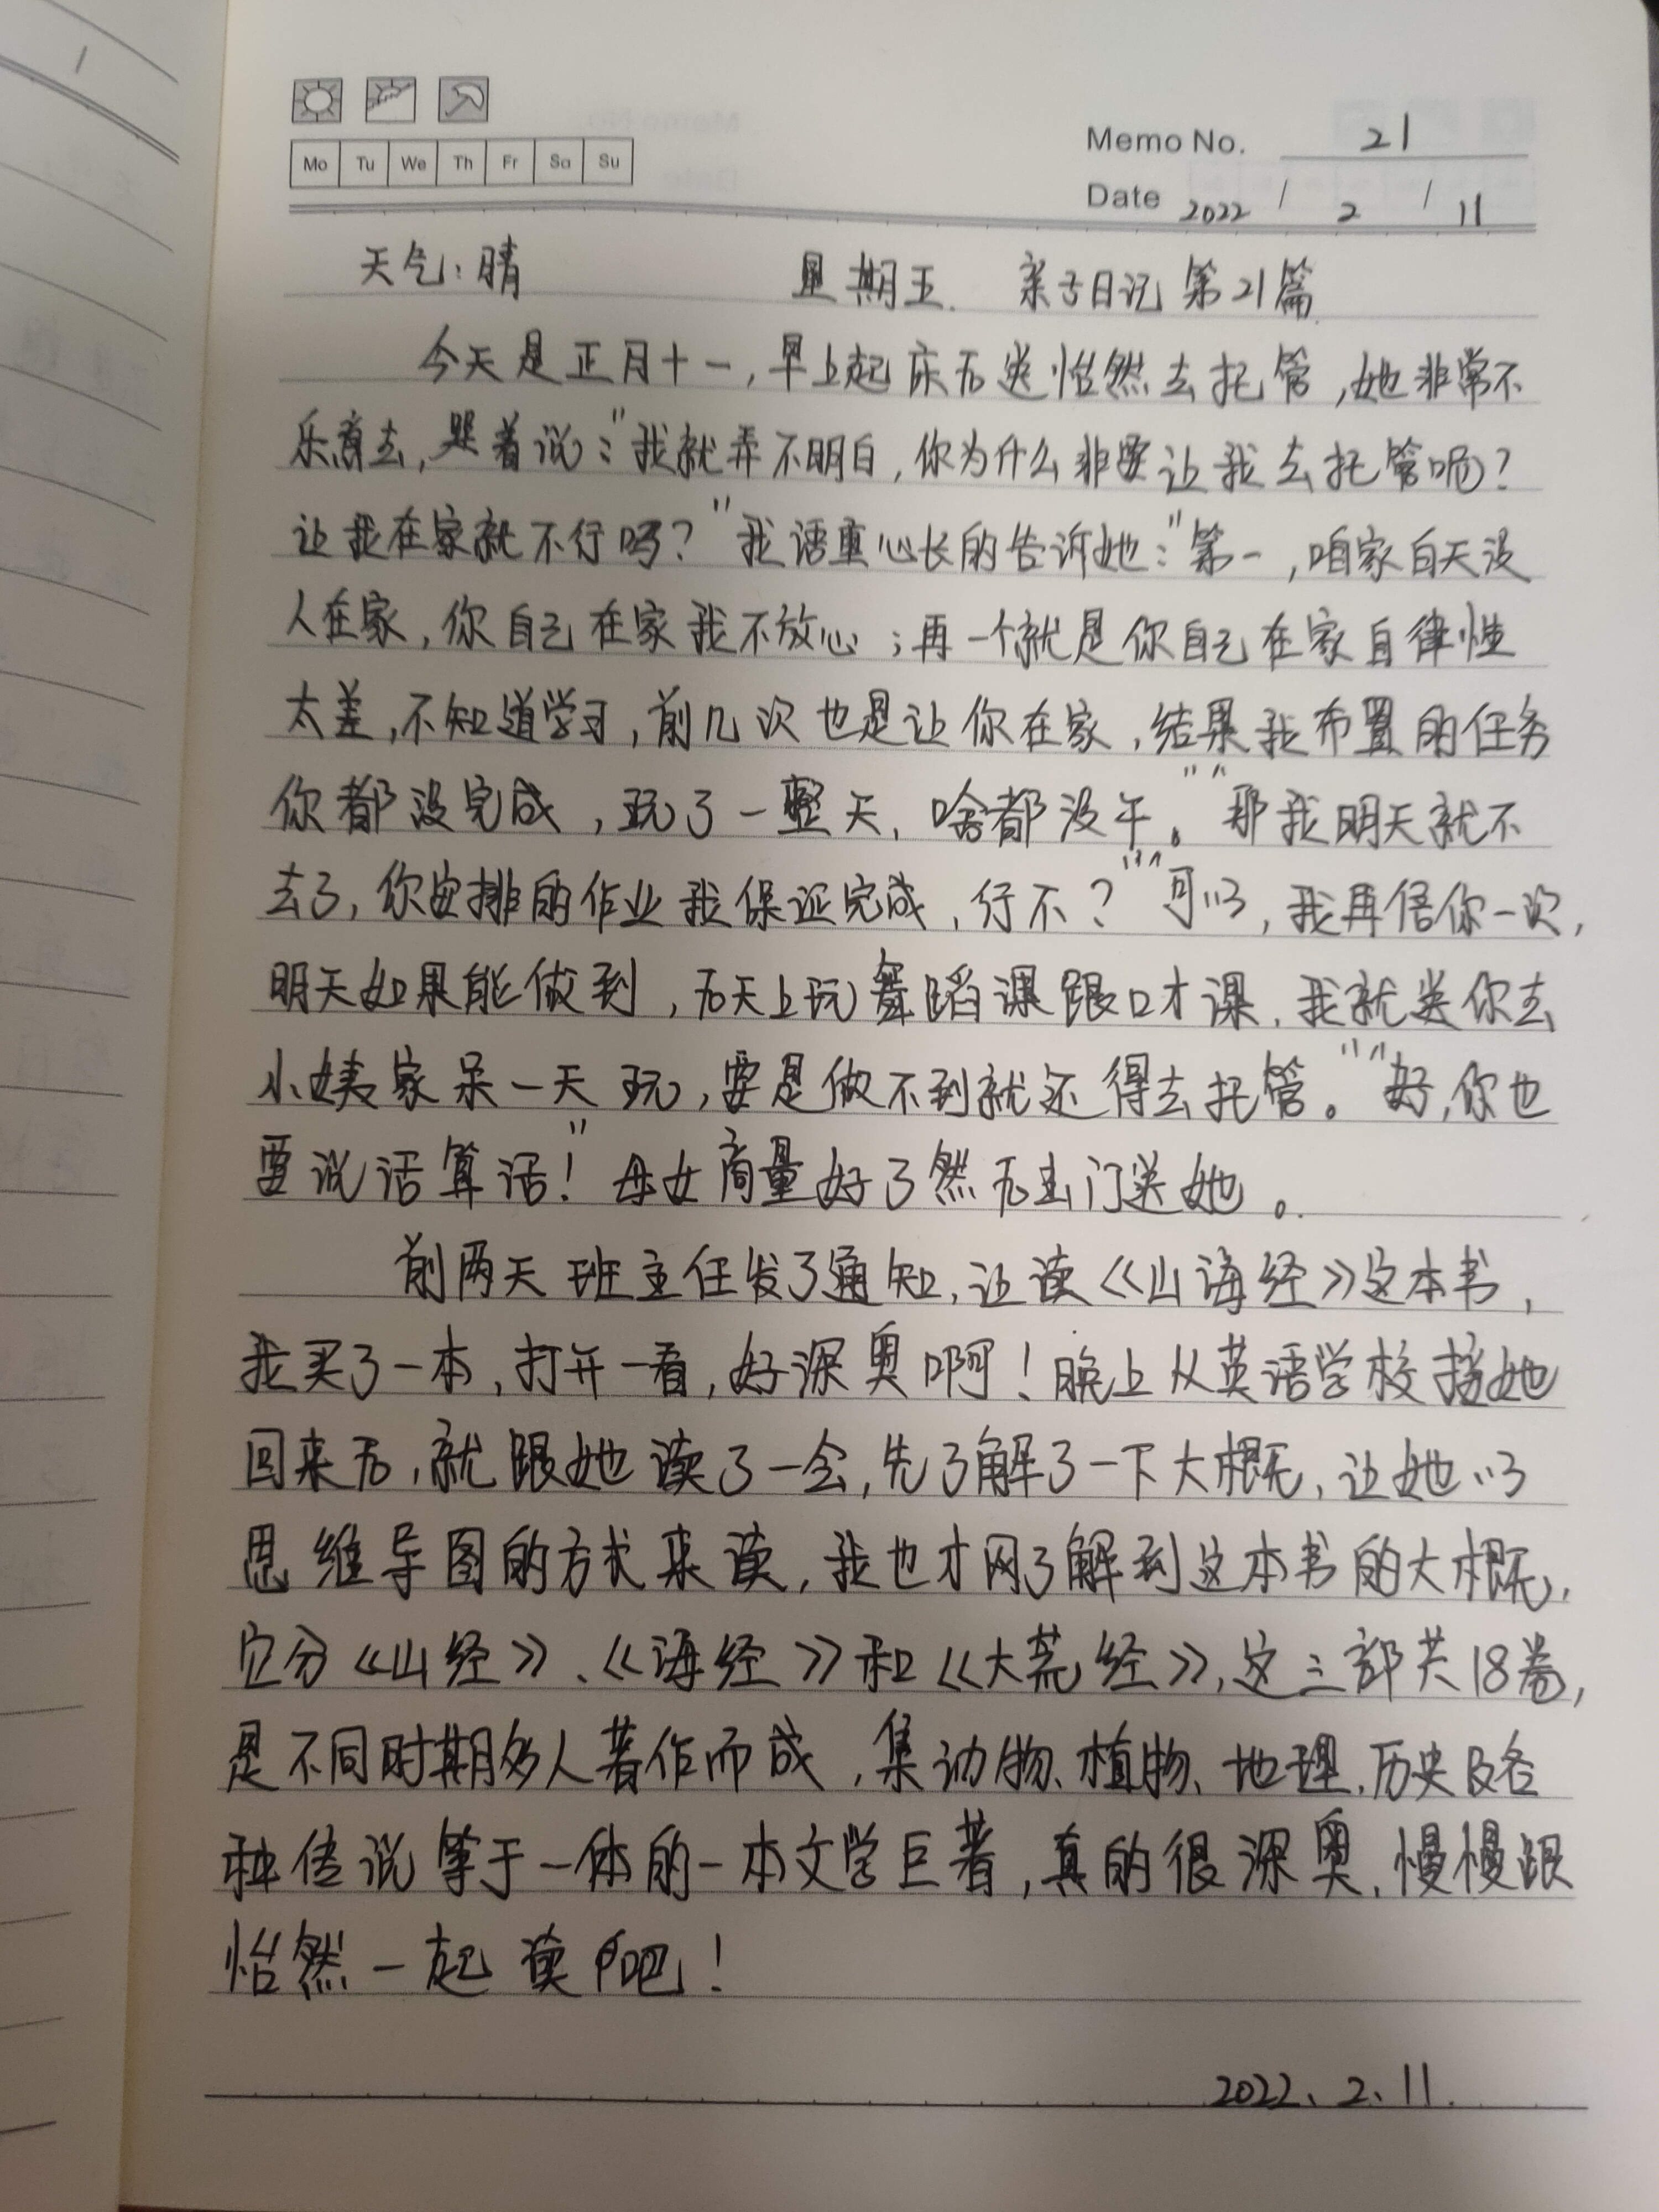 Memo No. 21
Mo Tu We Th Fr Sa Su
Date 2022 / 2 / 11
天气：晴 星期五. 亲子日记 第21篇
今天是正月十一，早上起床后送怡然去托管，她非常不
乐意去，哭着说："我就弄不明白，你为什么非要让我去托管呢？
让我在家就不行吗？"我语重心长的告诉她："第一，咱家白天没
人在家，你自己在家我不放心；再一个就是你自己在家自律性
太差，不知道学习，前几次也是让你在家，结果我布置的任务
你都没完成，玩了一整天，啥都没干。""那我明天就不
去了，你安排的作业我保证完成，行不？""可以，我再信你一次，
明天如果能做到，后天上玩舞蹈课跟口才课，我就送你去
小姨家呆一天玩，要是做不到就还得去托管。""好，你也
要说话算话！"母女商量好了然后出门送她。
前两天班主任发了通知，让读《山海经》这本书，
我买了一本，打开一看，好深奥啊！晚上从英语学校接她
回来后，就跟她读了一会，先了解了一下大概，让她以
思维导图的方式来读，我也才刚了解到这本书的大概，
它分《山经》、《海经》和《大荒经》，这三部共18卷，
是不同时期多人著作而成，集动物、植物、地理、历史及各
种传说等于一体的一本文学巨著，真的很深奥，慢慢跟
怡然一起读吧！
2022、2、11.